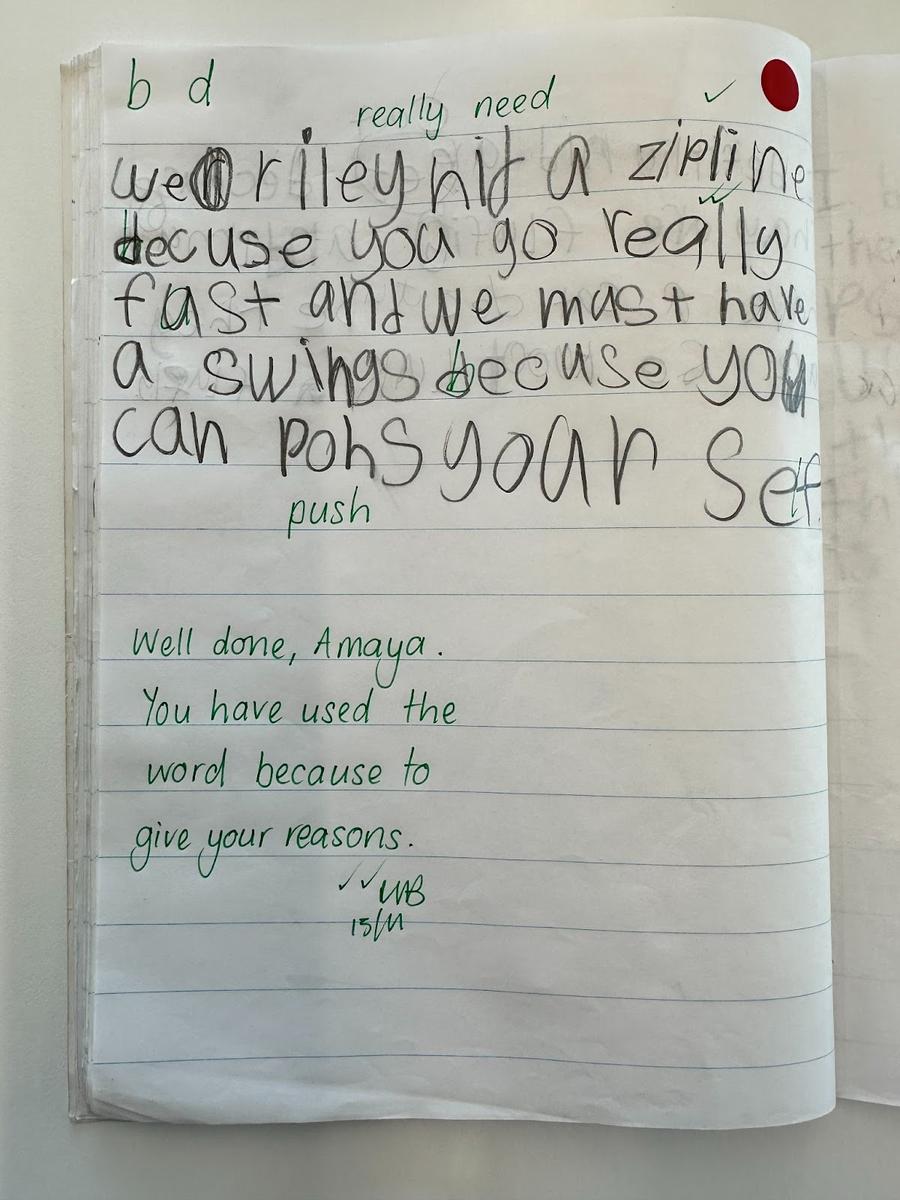 b d
really need
we riley nid a zipline
becuse you go really
fast and we must have
a swings becuse you
can pohs your self.
push
Well done, Amaya.
You have used the
word because to
give your reasons.
15/11